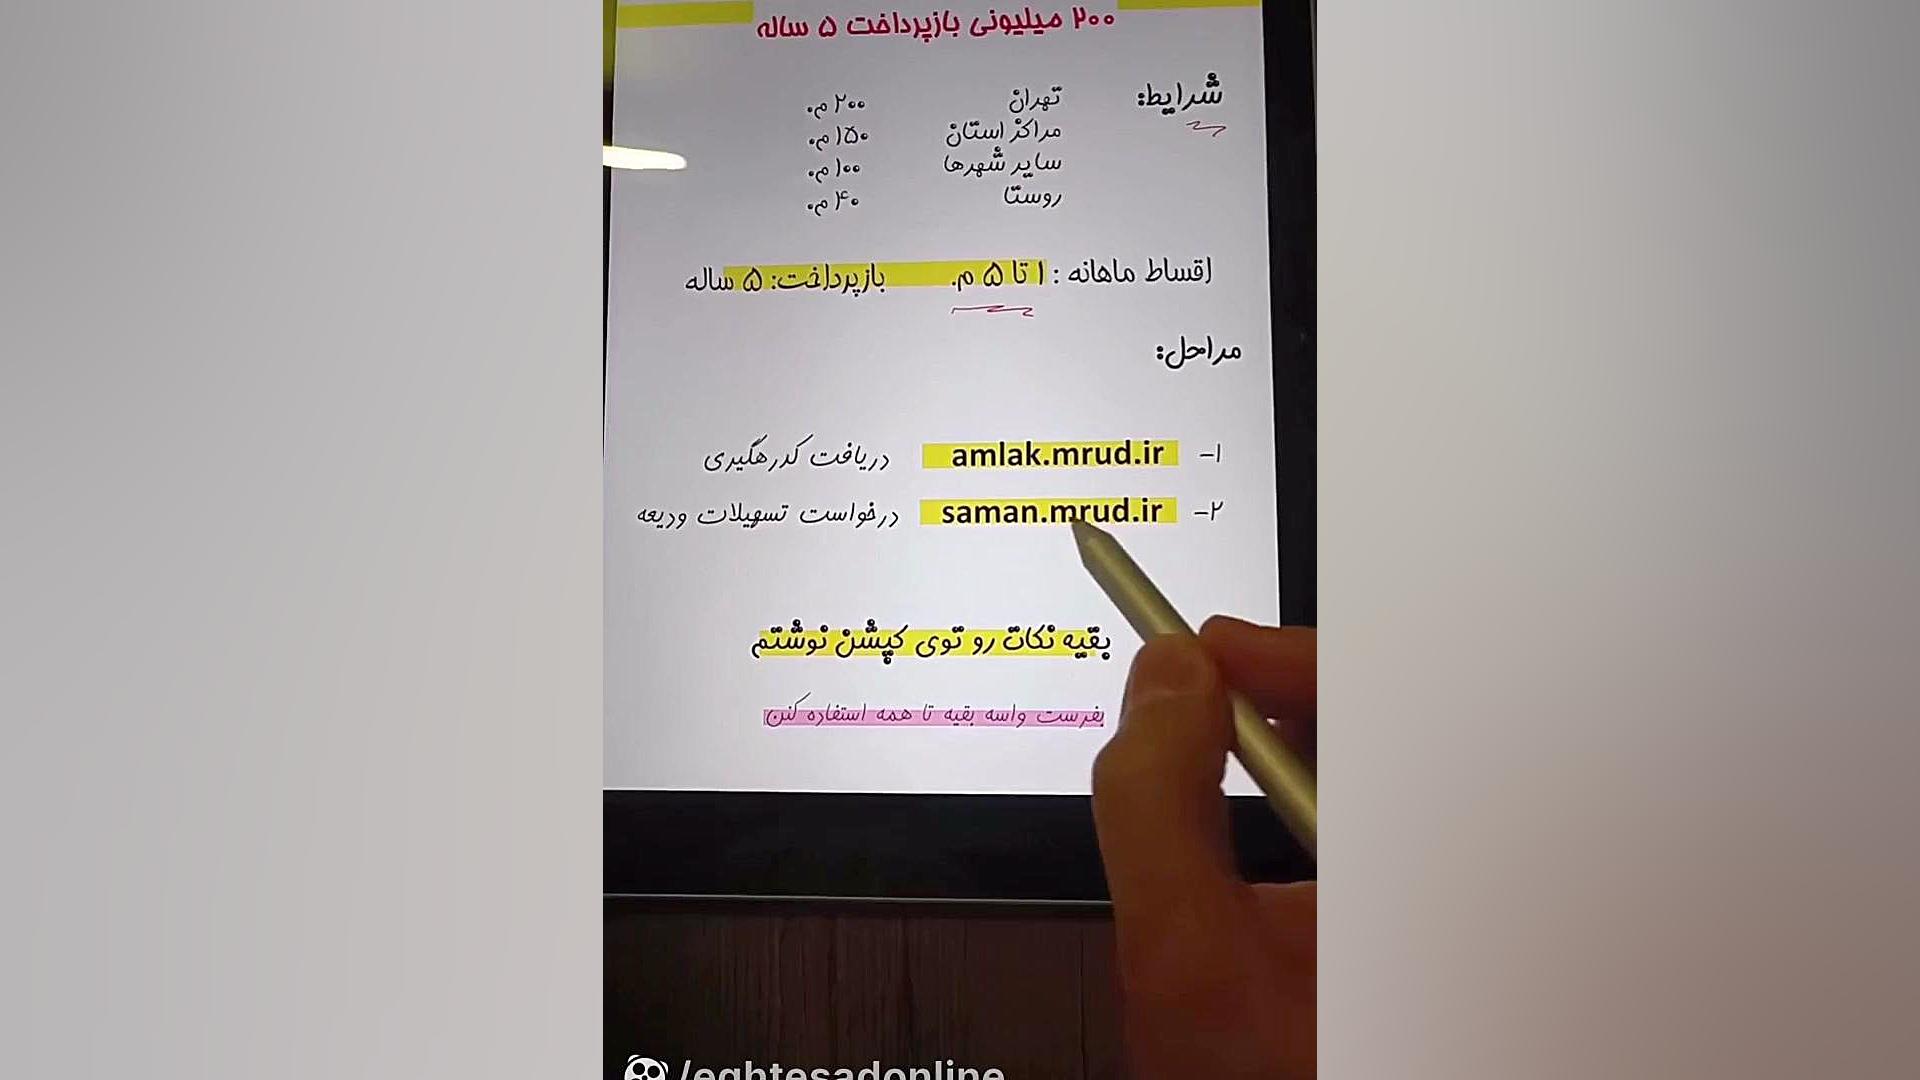 ۲۰۰ میلیونی بازپرداخت ۵ ساله
شرایط: تهران ۲۰۰ م.
مراکز استان ۱۵۰ م.
سایر شهرها ۱۰۰ م.
روستا ۴۰ م.
اقساط ماهانه : ۱ تا ۵ م. بازپرداخت: ۵ ساله
مراحل:
۱- amlak.mrud.ir دریافت کدرهگیری
۲- saman.mrud.ir درخواست تسهیلات ودیعه
بقیه نکات رو توی کپشن نوشتم
بفرست واسه بقیه تا همه استفاده کنن
/eghtesadonline